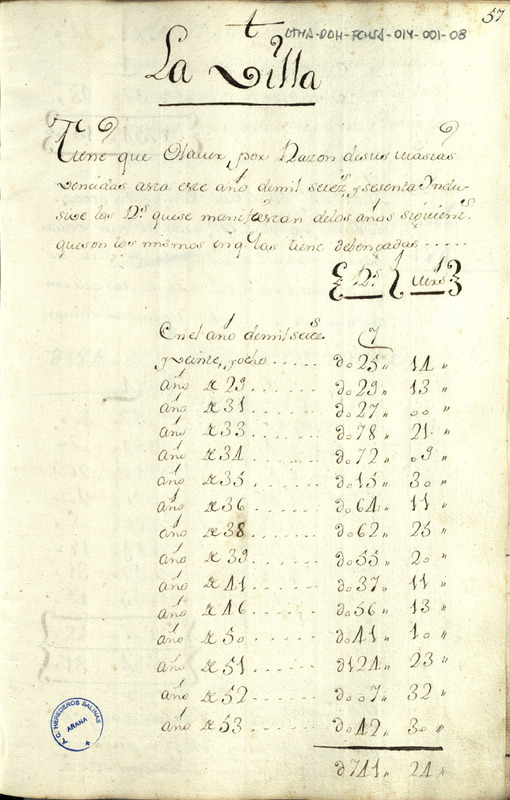 57
DTHA-DOH-FCHSA-014-001-08
La Villa
Tiene que Hauer, por Razon desus
vencidas asta este año demil setez.s y sesenta Ynclu-
sive los D.s quese manifiestan delos años siguient.s
queson los mismos en q.e las tiene debengadas .....
D.s mrs
En el año demil setez.s
y veinte, y ocho ..... do25 " 14 "
año de 29 ....... do29 " 13 "
año de 31 ....... do27 " oo "
año de 33 ....... do78 " 21 "
año de 34 ....... do72 " o9 "
año de 35 ....... do15 " 3o "
año de 36 ....... do64 " 11 "
año de 38 ....... do62 " 25 "
año de 39 ....... do55 " 2o "
año de 41 ....... do37 " 11 "
año de 46 ....... do56 " 13 "
año de 5o ....... do41 " 1o "
año de 51 ....... d124 " 23 "
año de 52 ....... doo7 " 32 "
año de 53 ....... do42 " 3o "
d741 " 24 "
A.C. HEREDEROS SALINAS
AÑANA